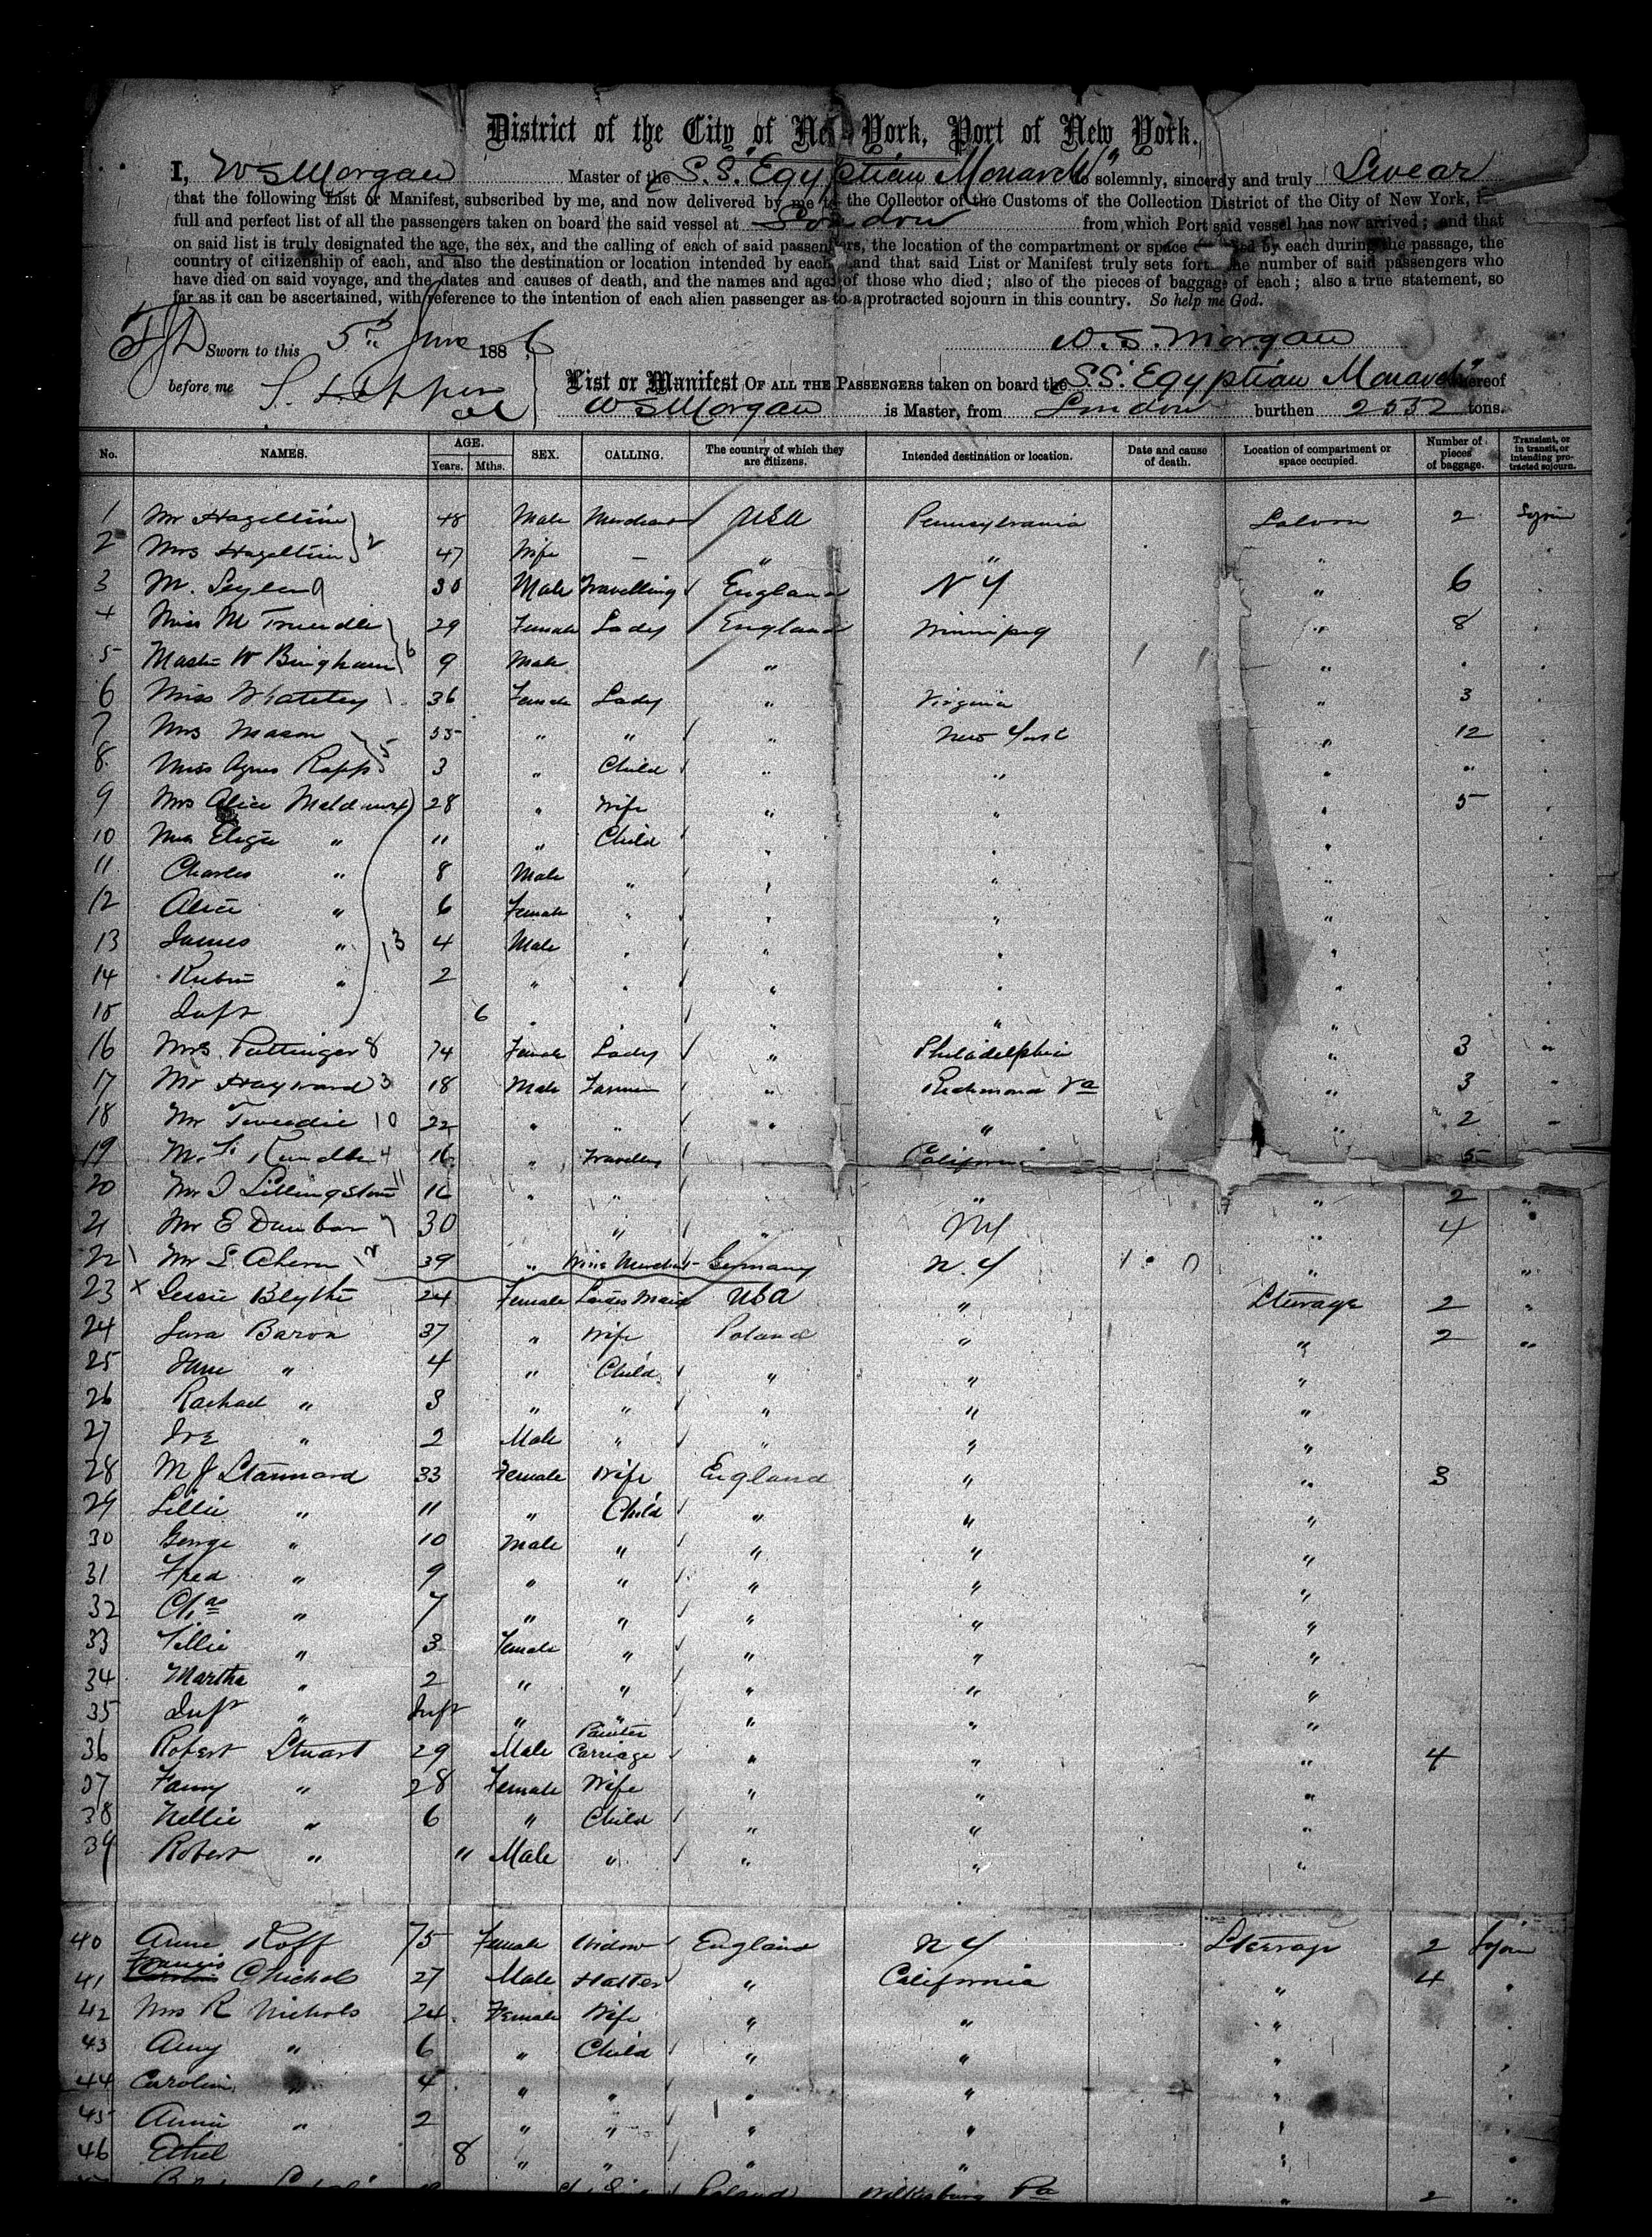 District of the City of New York, Port of New York.
I, W S Morgan Master of the S.S. "Egyptian Monarch" do solemnly, sincerely and truly Swear
that the following List or Manifest, subscribed by me, and now delivered by me to the Collector of the Customs of the Collection District of the City of New York, is
full and perfect list of all the passengers taken on board the said vessel at London from which Port said vessel has now arrived; and that
on said list is truly designated the age, the sex, and the calling of each of said passengers, the location of the compartment or space by each during the passage, the
country of citizenship of each, and also the destination or location intended by each and that said List or Manifest truly sets forth the number of said passengers who
have died on said voyage, and the dates and causes of death, and the names and ages of those who died; also of the pieces of baggage of each; also a true statement, so
far as it can be ascertained, with reference to the intention of each alien passenger as to a protracted sojourn in this country. So help me God.
Sworn to this 5th June 1886 W. S. Morgan
before me List or Manifest OF ALL THE PASSENGERS taken on board the S.S. "Egyptian Monarch" whereof
W S Morgan is Master, from London burthen 2532 tons.
No. NAMES. AGE. Years. Mths. SEX. CALLING. The country of which they are citizens. Intended destination or location. Date and cause of death. Location of compartment or space occupied. Number of pieces of baggage. Transient, or in transit, or intending protracted sojourn.
1 Mr Hazeltine 48 Male Merchant USA Pennsylvania Saloon 2 Sojourn
2 Mrs Hazeltine 2 47 Wife — " " "
3 M. 30 Male Travelling England N Y " 6
4 Miss M Trundle 29 Female Lady England Winnipeg " 8
5 Master W Bingham 6 9 Male " "
6 Miss Whateley 36 Female Lady " Virginia " 3
7 Mrs Mason 55 " " " New York " 12
8 Miss Agnes Rapp 5 3 " Child " " " "
9 Mrs Alice 28 " Wife " " " 5
10 Miss Eliza " 11 " Child " " "
11 Charles " 8 Male " " " "
12 Alice " 6 Female " " " "
13 James " 13 4 Male " " " "
14 " 2 " " " " "
15 Inft 6 " " " " "
16 Mrs Pottinger 8 74 Female Lady " Philadelphia " 3 "
17 Mr Hayward 3 18 Male Farmer " Richmond Va " 3 "
18 Mr Tweedie 10 22 " " " " " 2 "
19 4 16 " Traveller California 5
20 Mr Lillingston 11 16 " " " " 2 "
21 Mr E Dunbar 30 " " NY " 4
22 Mr S Ahern 39 " Wine Merchant Germany N.Y " "
23 x Jessie Blythe 24 Female Ladies Maid USA " Steerage 2 "
24 Sara Baron 37 " Wife Poland " " 2 "
25 Jane " 4 " Child " " "
26 Rachael " 3 " " " " "
27 " 2 Male " " " "
28 M J Stannard 33 Female Wife England " " 3
29 Lillie " 11 " Child " " "
30 George " 10 Male " " " "
31 Fred " 9 " " " " "
32 Chas " 7 " " " " "
33 Tillie " 3 Female " " " "
34 Martha " 2 " " " " "
35 Inft " Inft " " " " "
36 Robert Stuart 29 Male Carriage Painter " " " 4
37 Fanny " 28 Female Wife " " "
38 Nellie " 6 " Child " " "
39 Robert " " Male " " " "
40 Anne Roff 75 Female Widow England N Y Steerage 2 Sojourn
41 Francis Nichols 27 Male Hatter " California " 4 "
42 Mrs R Nichols 24 Female Wife " " " "
43 Amy " 6 " Child " " " "
44 Caroline " 4 " " " " " "
45 Annie " 2 " " " " " "
46 Ethel 8 " " " " " "
Poland Pa " 2 "